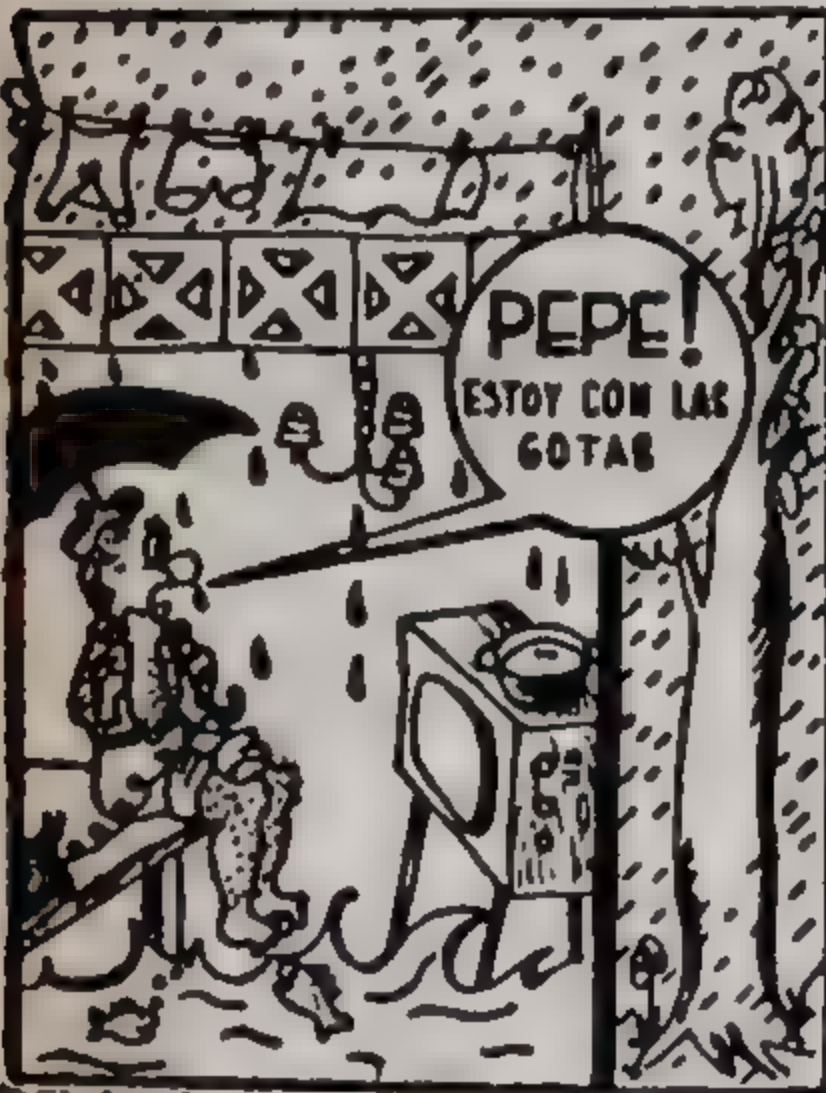 PEPE!
ESTOY CON LAS
GOTAS